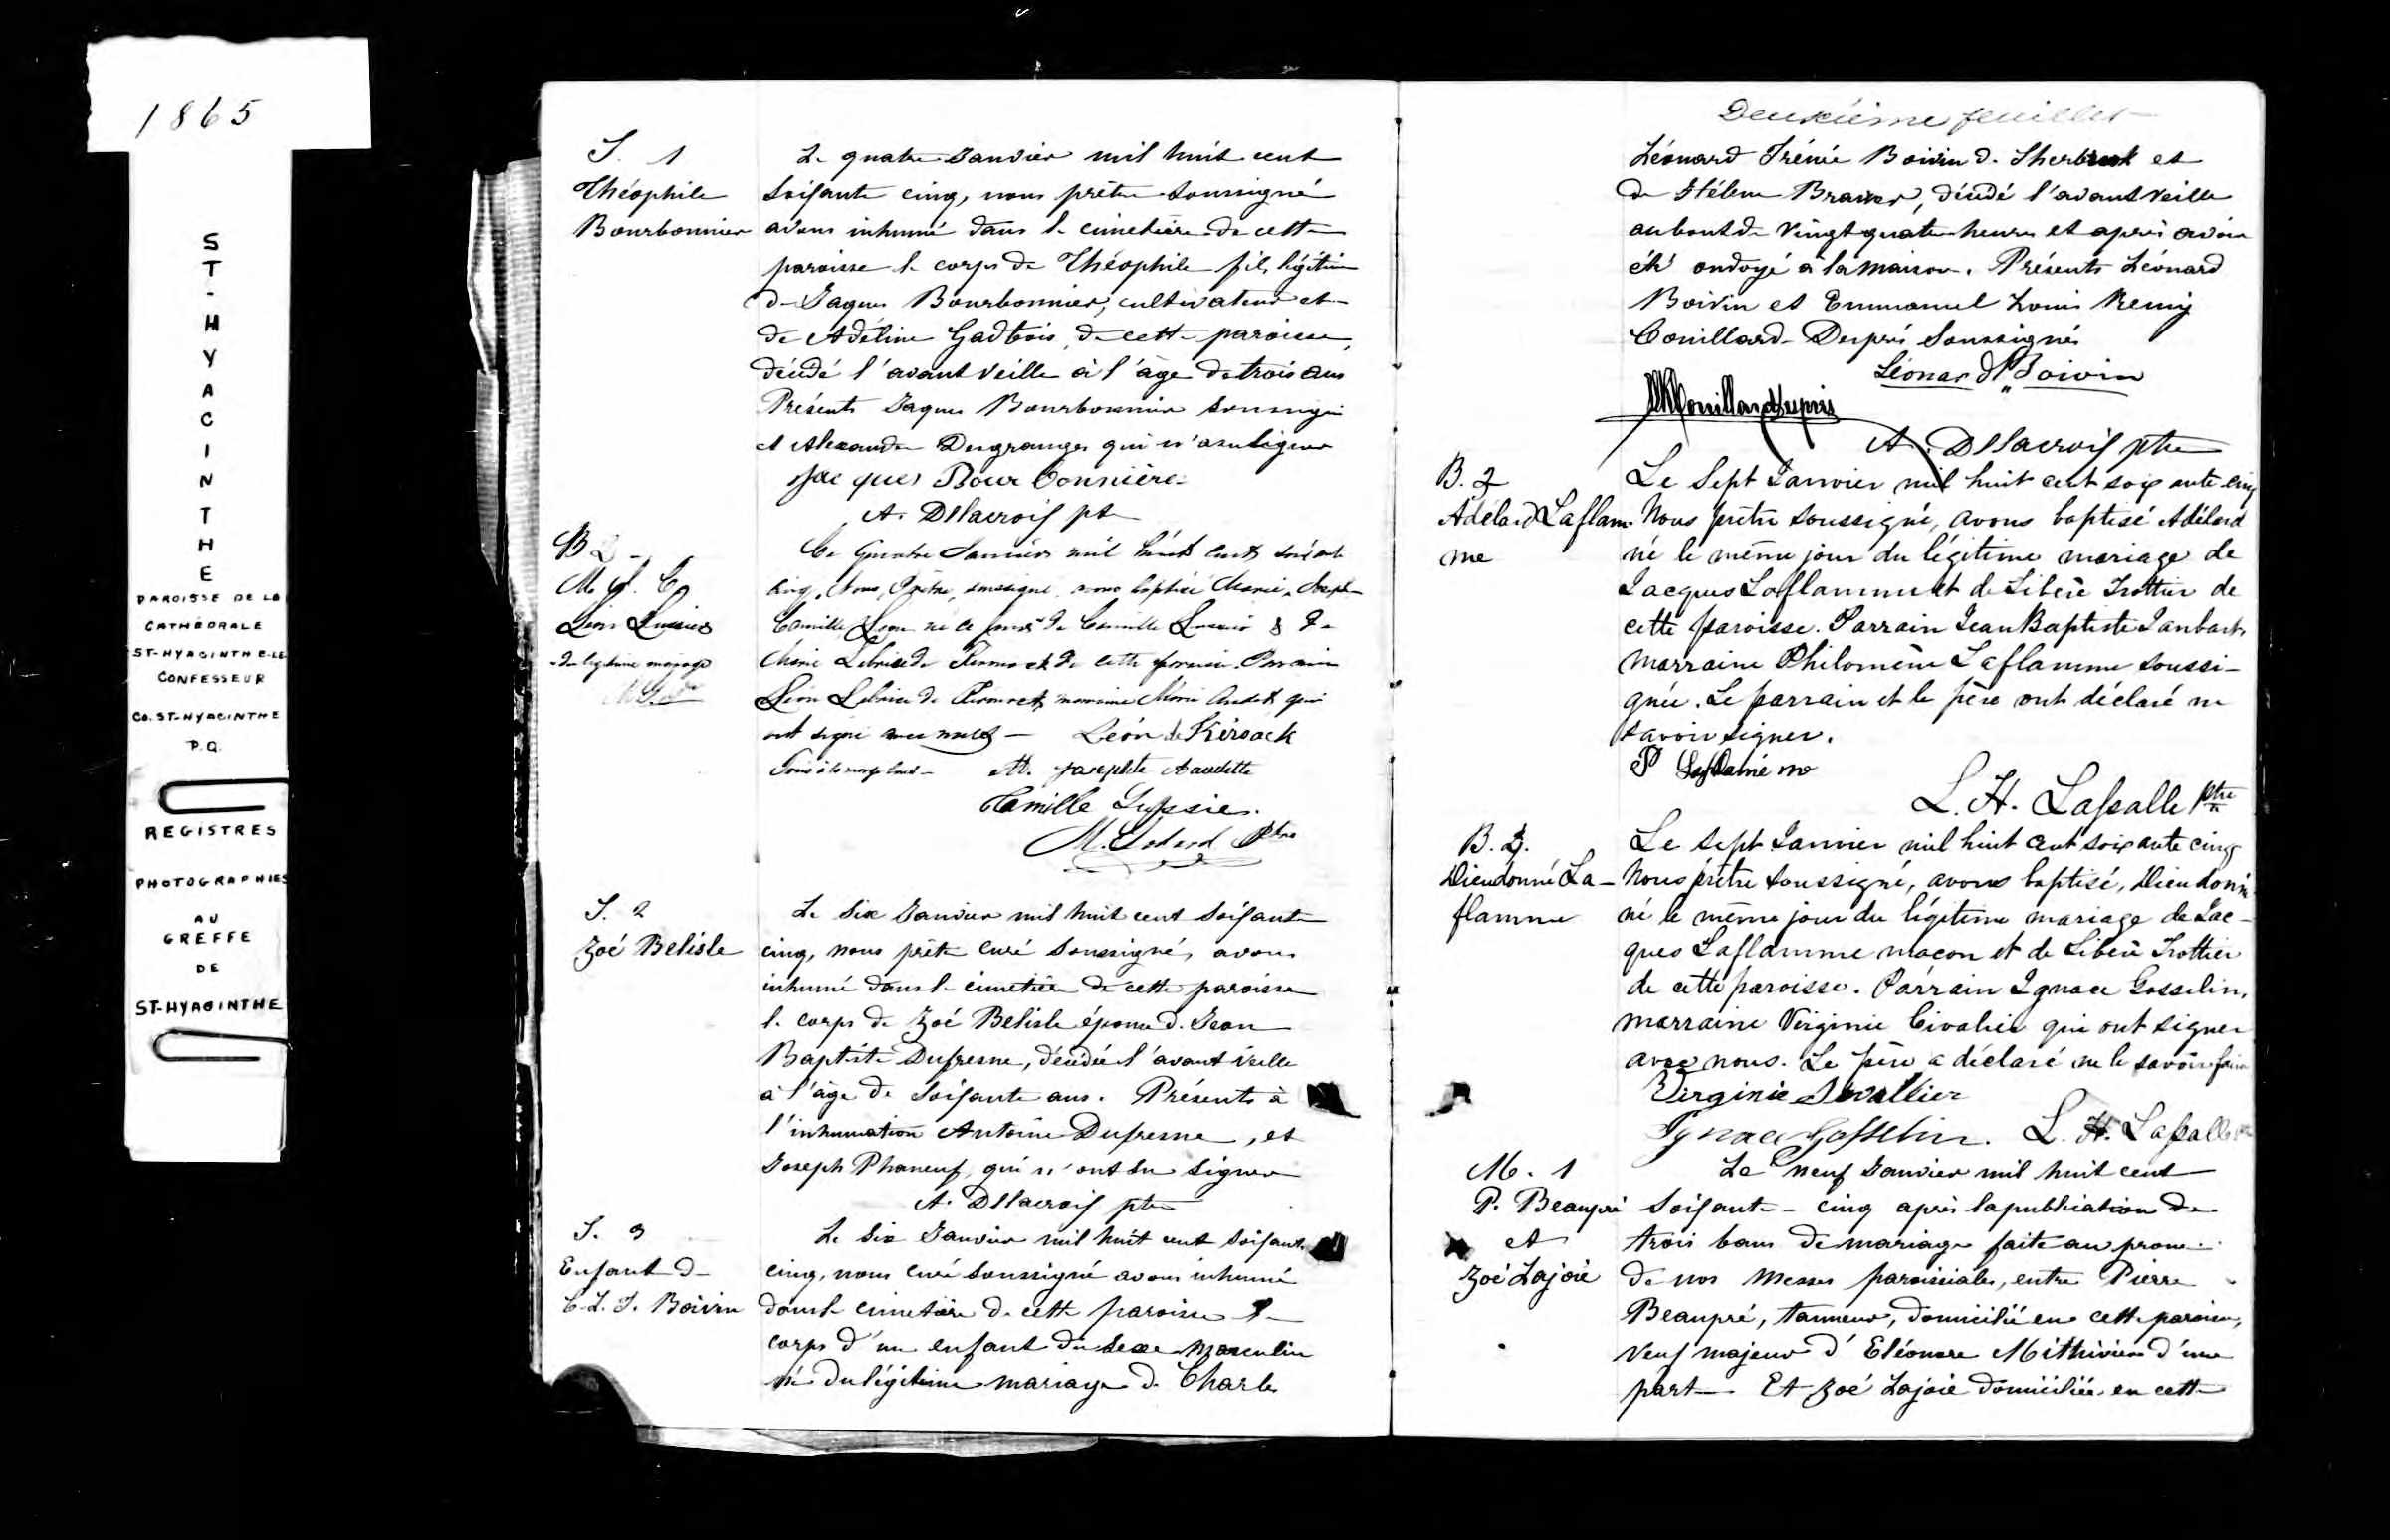 1865
ST-HYACINTHE
PAROISSE DE LA
CATHÉDRALE
ST-HYACINTHE-LE-
CONFESSEUR
CO. ST-HYACINTHE
P.Q.
REGISTRES
PHOTOGRAPHIES
AU
GREFFE
DE
ST-HYACINTHE
S. 1
Théophile
Bourbonnier
Le quatre Janvier mil huit cent
soixante cinq, nous prêtre soussigné
avons inhumé dans le cimetière de cette
paroisse le corps de Théophile fils légitime
de Jaques Bourbonnier, cultivateur et
de Adéline Gadbois, de cette paroisse,
décédé l'avant veille à l'âge de trois ans
Présents Jaques Bourbonnier soussigné
et Alexandre Desgranges qui n'a su signer
Jacques Bourbonnière
A. Dllacroix ptre
B 2
M. J. C.
Léon Lussier
du légitime mariage
Le Quatre Janvier mil huit cent soixante
cinq, Nous, Prêtre, soussigné, avons baptisé Marie, Joseph
Camille Léon né ce jour de Camille Lussier & de
Marie Lebrice de Keroack de cette paroisse. Parrain
Léon Lebrice de Keroack marraine Marie Audet qui
ont signé avec nous
Léon de Kéroack
M. Josephte Aaudette
Camille Lussier.
M. Godard Ptre
S. 2
Zoé Belisle
Le six Janvier mil huit cent soixante
cinq, nous prêtre curé soussigné, avons
inhumé dans le cimetière de cette paroisse
le corps de Zoé Belisle épouse de Jean
Baptiste Dufresne, décédée l'avant veille
à l'âge de soixante ans. Présents à
l'inhumation Antoine Dufresne, et
Joseph Phaneuf qui n'ont su signer
A. Dllacroix ptre
S. 3
Enfant de
C. L. I. Boivin
Le six Janvier mil huit cent soixante
cinq, nous curé soussigné avons inhumé
dans le cimetière de cette paroisse le
corps d'un enfant du sexe masculin
né du légitime mariage de Charles
Deuxième feuillet
Léonard Irénée Boivin de Sherbrook et
de Hélène , décédé l'avant veille
au bout de vingt quatre heures et après avoir
été ondoyé à la maison. Présents Léonard
Boivin et Emmanuel Louis Remy
Couillard Després soussignés
Léonard Boivin
Couillard Després
A. Dllacroix ptre
B. 2
Adélard Laflam-
me
Le Sept Janvier mil huit cent soixante cinq
Nous prêtre soussigné, avons baptisé Adélard
né le même jour du légitime mariage de
Jacques Laflamme et de Libère Trottier de
cette paroisse. Parrain Jean Baptiste
marraine Philomène Laflamme soussi-
gnée. Le parrain et le père ont déclaré ne
savoir signer.
P Laflamme
L. H. Lassalle Ptre
B. 3.
Dieudonné La-
flamme
Le Sept Janvier mil huit cent soixante cinq
Nous prêtre soussigné, avons baptisé, Dieudonné
né le même jour du légitime mariage de Jac-
ques Laflamme maçon et de Libère Trottier
de cette paroisse. Parrain Ignace Gosselin,
marraine Virginie Civalier qui ont signer
avec nous. Le père a déclaré ne le savoir faire
Virginie Sivallier
Ignace Gosselin.
L. H. Lassalle
M. 1
P. Beaupré
et
Zoé Lajoie
Le neuf Janvier mil huit cent
soixante-cinq après la publication de
trois bans de mariage faite au prone
de nos Messes paroissiales, entre Pierre
Beaupré, tanneur, domicilié en cette paroisse,
veuf majeur d'Eléonore Mithivier d'une
part. Et Zoé Lajoie domiciliée en cette